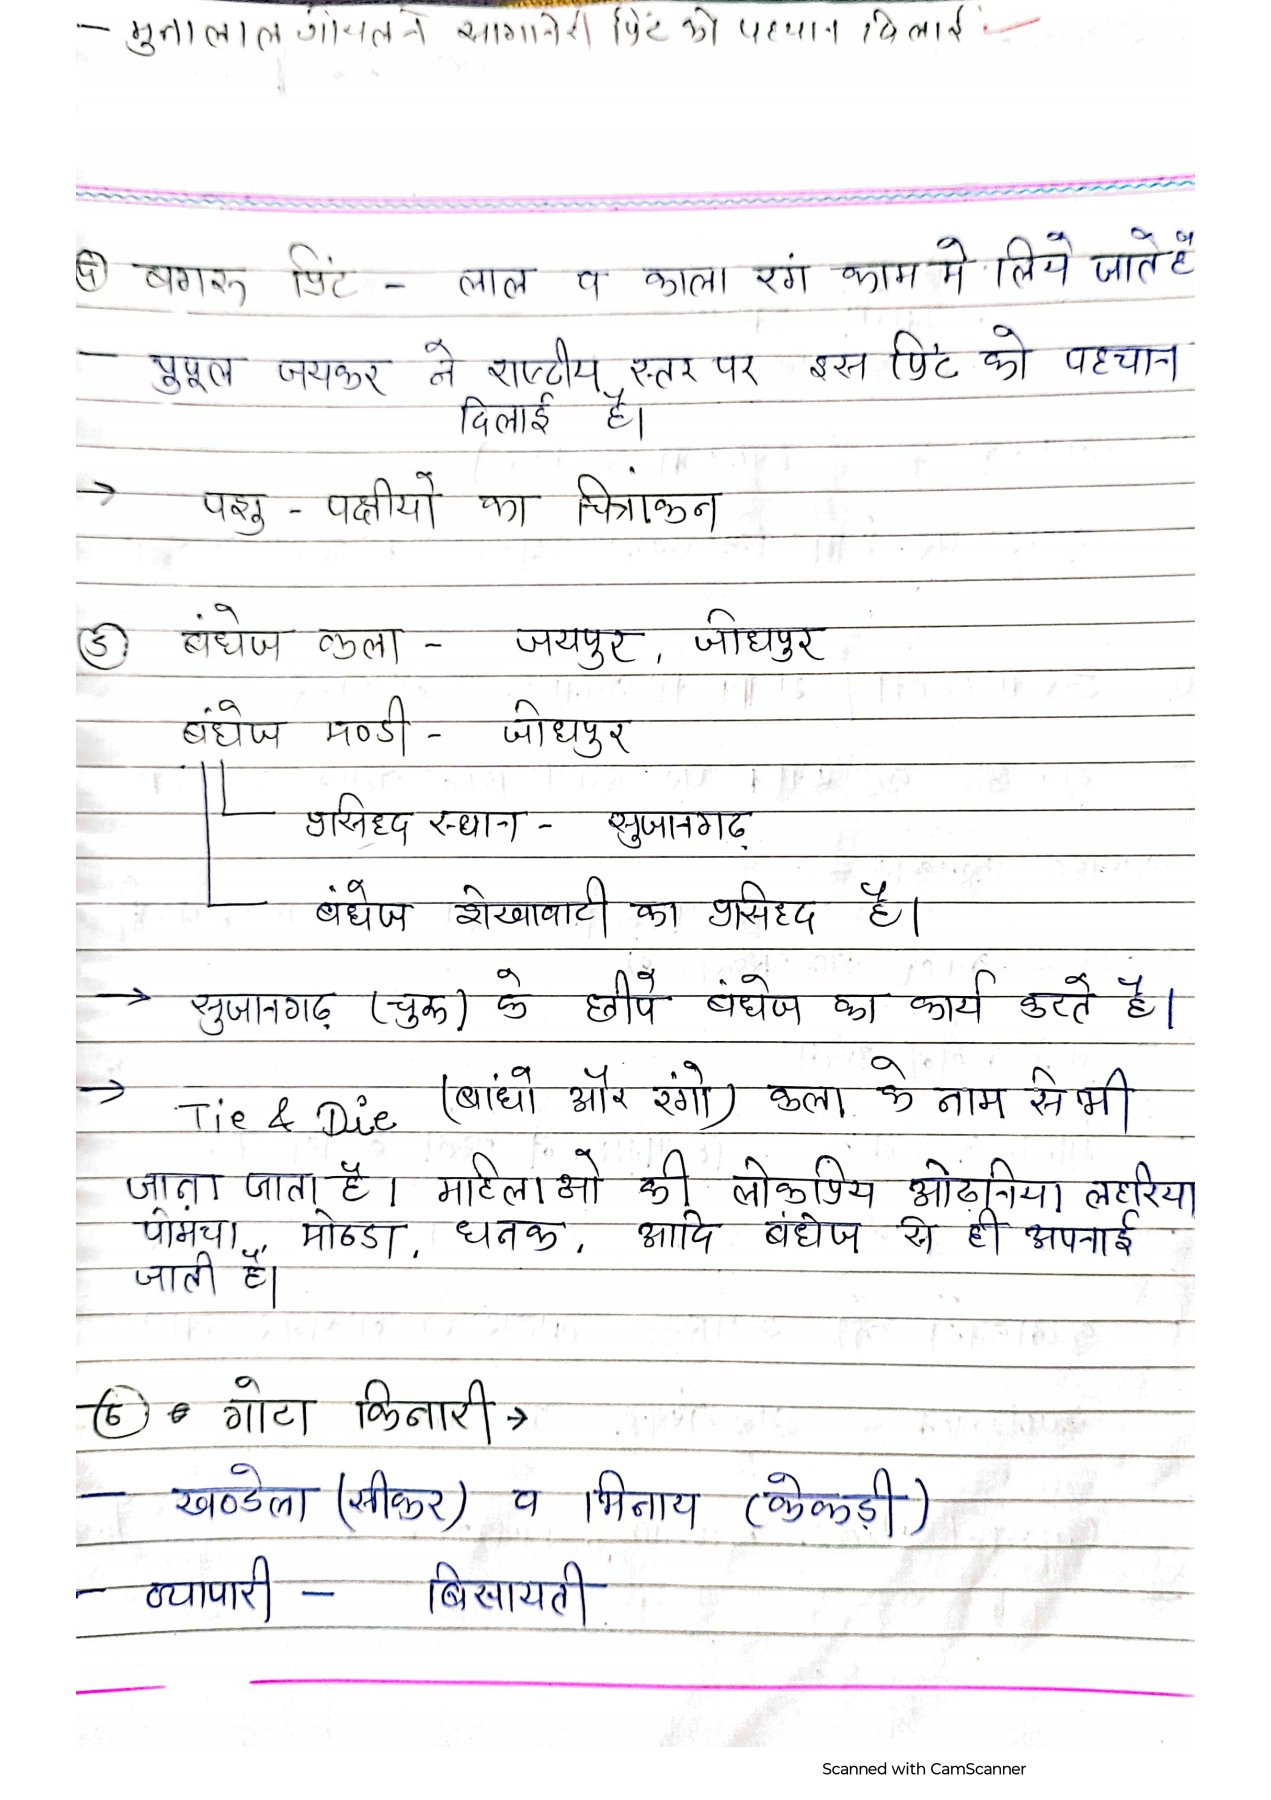 - मुनालाल गोयल ने सांगानेरी प्रिंट को पहचान दिलाई
बगरू प्रिंट - लाल व काला रंग काम मे लिये जाते है
- पुपूल जयकर ने राष्ट्रीय स्तर पर इस प्रिंट को पहचान
दिलाई है।
→ पशु - पक्षीयों का चित्रांकन
बंधेज कला - जयपुर, जोधपुर
बंधेज मण्डी - जोधपुर
प्रसिद्द स्थान - सुजानगढ़
बंधेज शेखावाटी का प्रसिद्द है।
→ सुजानगढ़ (चुरू) के छीपे बंधेज का कार्य करते है।
→ Tie & Die (बांधो और रंगो) कला के नाम से भी
जाना जाता है। महिलाओ की लोकप्रिय ओढ़निया लहरिया
पोमचा, मोठडा, धनक, आदि बंधेज से ही अपनाई
जाती है।
⑥ गोटा किनारी →
- खण्डेला (सीकर) व भिनाय (केकड़ी)
- व्यापारी - बिसायती
Scanned with CamScanner